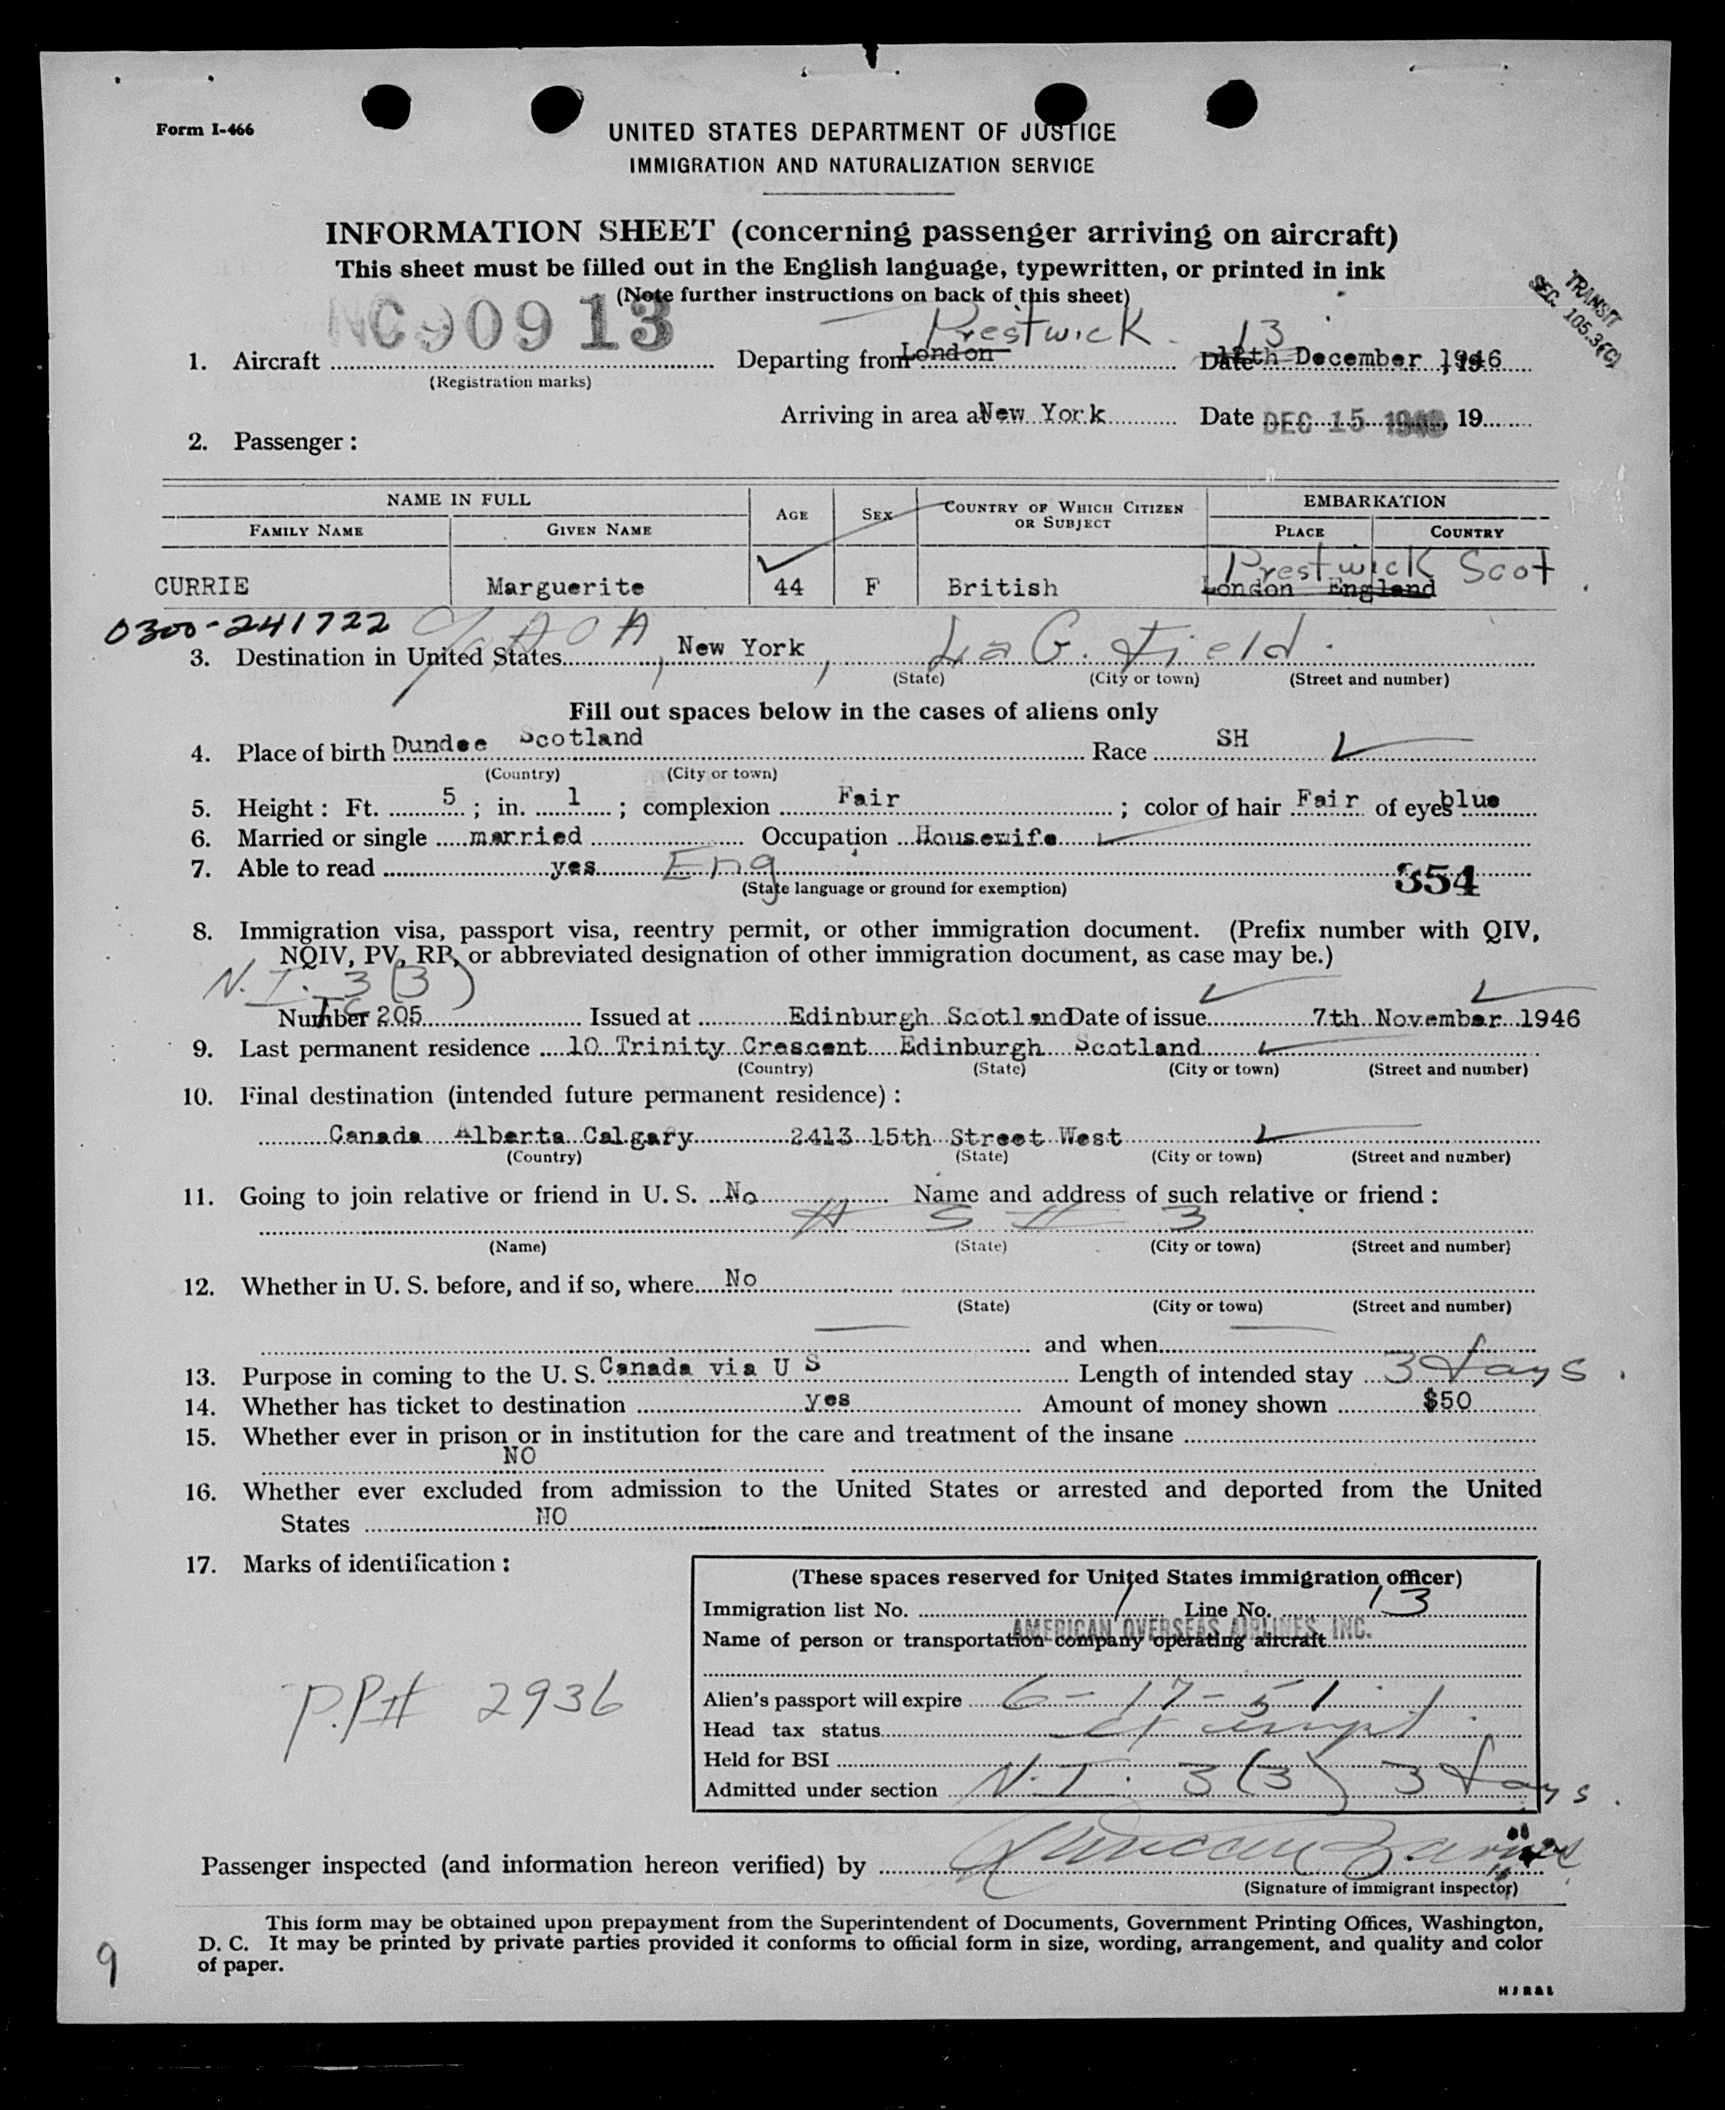 Form I-466
UNITED STATES DEPARTMENT OF JUSTICE
IMMIGRATION AND NATURALIZATION SERVICE
INFORMATION SHEET (concerning passenger arriving on aircraft)
This sheet must be filled out in the English language, typewritten, or printed in ink
(Note further instructions on back of this sheet)
TRANSIT
SEC. 105.3(C)
NC90913 Prestwick 13
1. Aircraft Departing from London Date 12th December 1946, 19
(Registration marks)
Arriving in area at New York Date DEC 15 1946, 19
2. Passenger :
NAME IN FULL AGE SEX COUNTRY OF WHICH CITIZEN OR SUBJECT EMBARKATION
FAMILY NAME GIVEN NAME PLACE COUNTRY
Prestwick Scot
CURRIE Marguerite 44 F British London England
0300-241722 % AOA
3. Destination in United States , New York, La G. Field.
(State) (City or town) (Street and number)
Fill out spaces below in the cases of aliens only
4. Place of birth Dundee Scotland Race SH
(Country) (City or town)
5. Height : Ft. 5 ; in. 1 ; complexion Fair ; color of hair Fair of eyes blue
6. Married or single married Occupation Housewife
7. Able to read yes Eng
(State language or ground for exemption) 354
8. Immigration visa, passport visa, reentry permit, or other immigration document. (Prefix number with QIV,
NQIV, PV, RP, or abbreviated designation of other immigration document, as case may be.)
N.I. 3(3)
Number 205 Issued at Edinburgh Scotland Date of issue 7th November 1946
9. Last permanent residence 10 Trinity Crescent Edinburgh Scotland
(Country) (State) (City or town) (Street and number)
10. Final destination (intended future permanent residence) :
Canada Alberta Calgary 2413 15th Street West
(Country) (State) (City or town) (Street and number)
11. Going to join relative or friend in U. S. No Name and address of such relative or friend :
(Name) (State) (City or town) (Street and number)
12. Whether in U. S. before, and if so, where No
(State) (City or town) (Street and number)
and when
13. Purpose in coming to the U. S. Canada via U S Length of intended stay 3 days.
14. Whether has ticket to destination yes Amount of money shown $50
15. Whether ever in prison or in institution for the care and treatment of the insane
NO
16. Whether ever excluded from admission to the United States or arrested and deported from the United
States NO
17. Marks of identification :
P.P# 2936
(These spaces reserved for United States immigration officer)
Immigration list No. 1 Line No. 13
AMERICAN OVERSEAS AIRLINES INC.
Name of person or transportation company operating aircraft
Alien's passport will expire 6-17-51
Head tax status exempt
Held for BSI
Admitted under section N.I. 3(3) 3 days.
Passenger inspected (and information hereon verified) by
(Signature of immigrant inspector)
This form may be obtained upon prepayment from the Superintendent of Documents, Government Printing Offices, Washington,
D. C. It may be printed by private parties provided it conforms to official form in size, wording, arrangement, and quality and color
of paper.
9